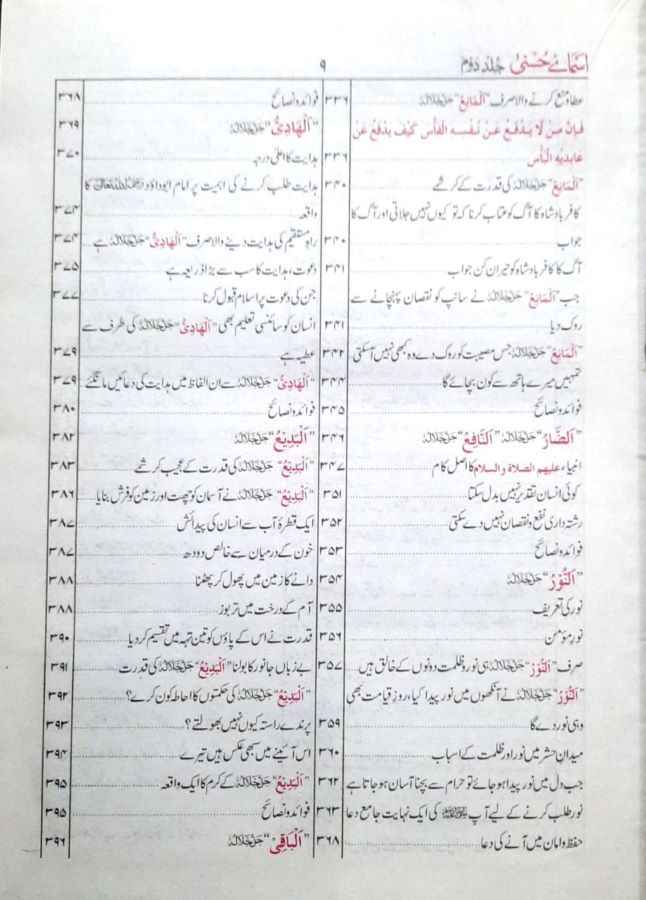 اسمائے حُسنیٰ جلد دوم
۹
عطا و منع کرنے والا صرف "اَلْمَانِعُ" جَلَّ جَلَالُہٗ ۳۳۶
فَإِنَّ مَنْ لَا يَدْفَعُ عَنْ نَفْسِهِ الْفَأْسَ كَيْفَ يَدْفَعُ عَنْ
عَابِدِيهِ الْبَأْسَ ۳۳۶
"اَلْمَانِعُ" جَلَّ جَلَالُہٗ کی قدرت کے کرشمے ۳۴۰
کافر بادشاہ کا آگ کو عتاب کرنا کہ تو کیوں نہیں جلاتی اور آگ کا
جواب ۳۴۰
آگ کا کافر بادشاہ کو حیران کن جواب ۳۴۱
جب "اَلْمَانِعُ" جَلَّ جَلَالُہٗ نے سانپ کو نقصان پہنچانے سے
روک دیا ۳۴۱
"اَلْمَانِعُ" جَلَّ جَلَالُہٗ جس مصیبت کو روک دے وہ کبھی نہیں آسکتی ۳۴۲
تمہیں میرے ہاتھ سے کون بچائے گا ۳۴۴
فوائد و نصائح ۳۴۵
"اَلضَّارُّ" جَلَّ جَلَالُہٗ "اَلنَّافِعُ" جَلَّ جَلَالُہٗ ۳۴۶
انبیاء علیہم الصلاة والسلام کا اصل کام ۳۴۷
کوئی انسان تقدیر نہیں بدل سکتا ۳۵۱
رشتہ داری نفع و نقصان نہیں دے سکتی ۳۵۲
فوائد و نصائح ۳۵۳
"اَلنُّوْرُ" جَلَّ جَلَالُہٗ ۳۵۴
نور کی تعریف ۳۵۵
نورِ مؤمن ۳۵۶
صرف "اَلنُّوْرُ" جَلَّ جَلَالُہٗ ہی نور و ظلمت دونوں کے خالق ہیں ۳۵۷
"اَلنُّوْرُ" جَلَّ جَلَالُہٗ نے آنکھوں میں نور پیدا کیا، روزِ قیامت بھی
وہی نور دے گا ۳۵۹
میدانِ حشر میں نور اور ظلمت کے اسباب ۳۶۰
جب دل میں نور پیدا ہو جائے تو حرام سے بچنا آسان ہو جاتا ہے ۳۶۲
نور طلب کرنے کے لیے آپ ﷺ کی ایک نہایت جامع دعا ۳۶۳
حفظ و امان میں آنے کی دعا ۳۶۸
فوائد و نصائح ۳۶۸
"اَلْهَادِیُّ" جَلَّ جَلَالُہٗ ۳۶۹
ہدایت کا اعلیٰ درجہ ۳۷۰
ہدایت طلب کرنے کی اہمیت پر امام ابوداؤد رحمہ اللہ تعالیٰ کا
واقعہ ۳۷۴
راہِ مستقیم کی ہدایت دینے والا صرف "اَلْهَادِیُّ" جَلَّ جَلَالُہٗ ہے ۳۷۴
دعوت، ہدایت کا سب سے بڑا ذریعہ ہے ۳۷۵
جن کی دعوت پر اسلام قبول کرنا ۳۷۷
انسان کو سائنسی تعلیم بھی "اَلْهَادِیُّ" جَلَّ جَلَالُہٗ کی طرف سے
عطیہ ہے ۳۷۹
"اَلْهَادِیُّ" جَلَّ جَلَالُہٗ سے ان الفاظ میں ہدایت کی دعائیں مانگئے ۳۷۹
فوائد و نصائح ۳۸۰
"اَلْبَدِيْعُ" جَلَّ جَلَالُہٗ ۳۸۲
"اَلْبَدِيْعُ" جَلَّ جَلَالُہٗ کی قدرت کے عجیب کرشمے ۳۸۳
"اَلْبَدِيْعُ" جَلَّ جَلَالُہٗ نے آسمان کو چھت اور زمین کو فرش بنایا ۳۸۶
ایک قطرۂ آب سے انسان کی پیدائش ۳۸۷
خون کے درمیان سے خالص دودھ ۳۸۷
دانے کا زمین میں پھول کر پھٹنا ۳۸۸
آم کے درخت میں تربوز ۳۸۸
قدرت نے اس کے پاؤں کو تین تہہ میں تقسیم کر دیا ۳۹۰
بے زباں جانور کا بولنا "اَلْبَدِيْعُ" جَلَّ جَلَالُہٗ کی قدرت ۳۹۱
"اَلْبَدِيْعُ" جَلَّ جَلَالُہٗ کی حکمتوں کا احاطہ کون کرے؟ ۳۹۲
پرندے راستہ کیوں نہیں بھولتے؟ ۳۹۳
اس آئینے میں سبھی عکس ہیں تیرے ۳۹۴
"اَلْبَدِيْعُ" جَلَّ جَلَالُہٗ کے کرم کا ایک واقعہ ۳۹۵
فوائد و نصائح ۳۹۵
"اَلْبَاقِیْ" جَلَّ جَلَالُہٗ ۳۹۶